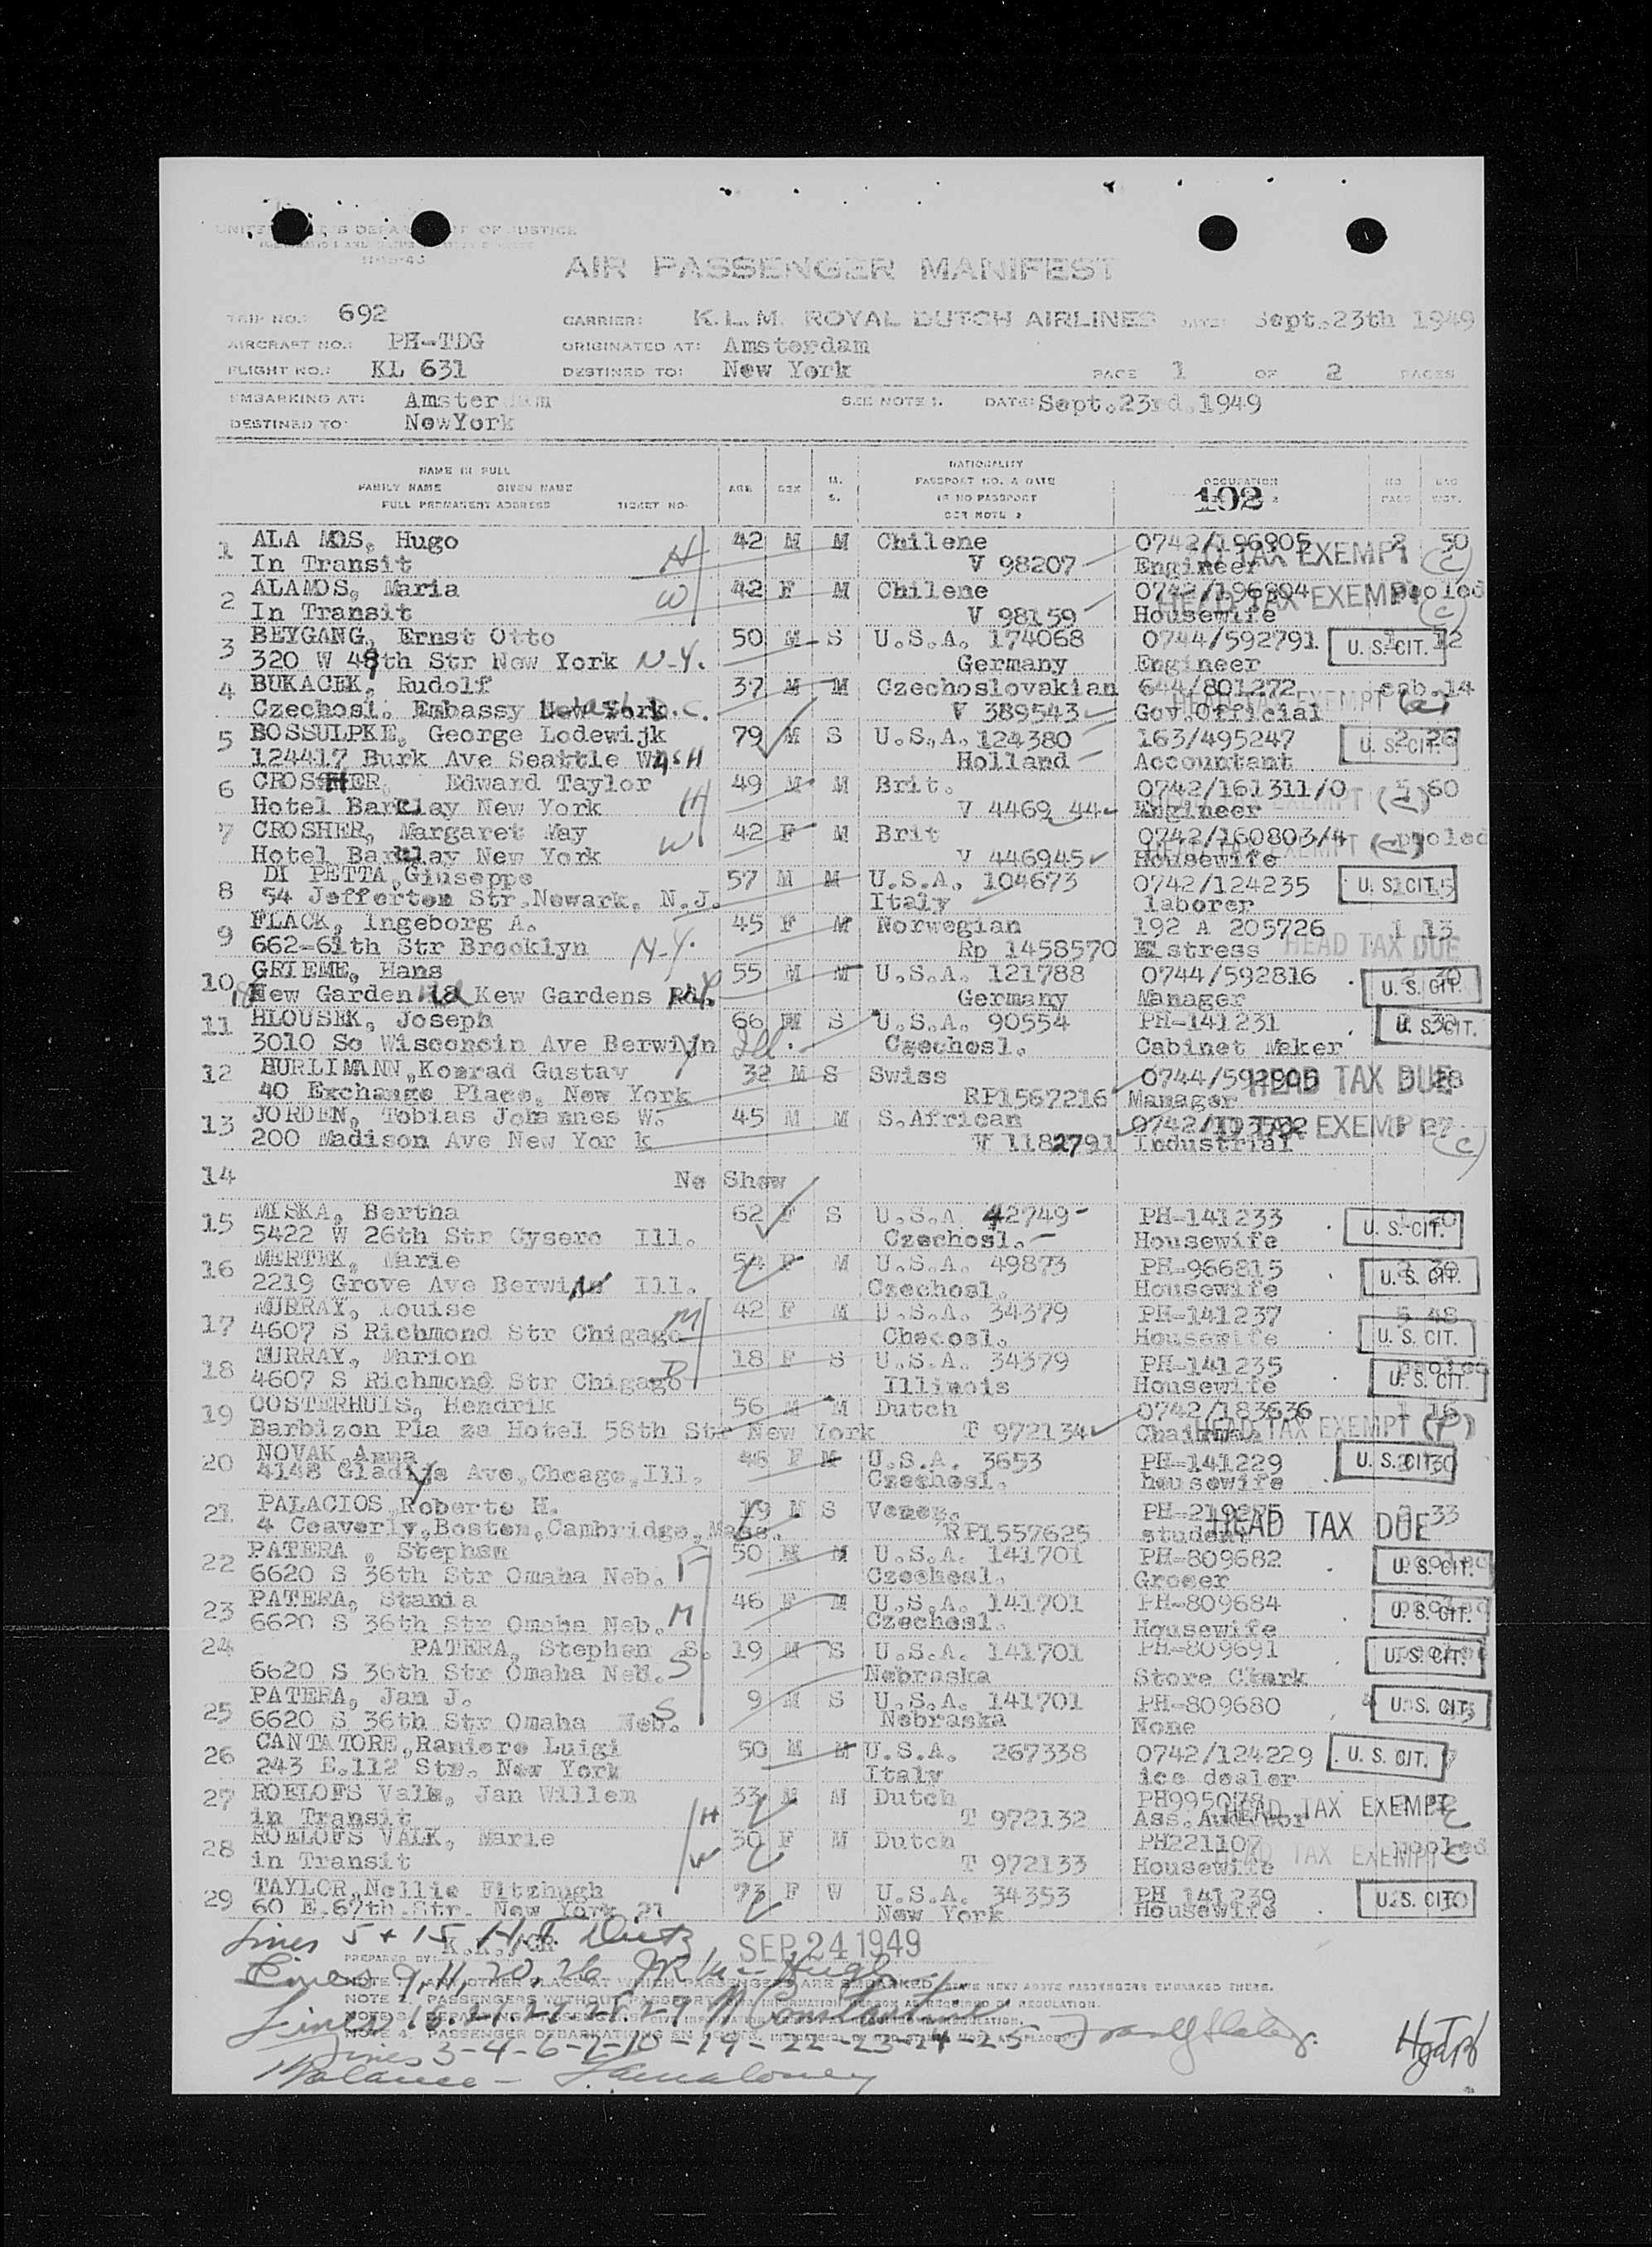 UNITED STATES DEPARTMENT OF JUSTICE
AIR PASSENGER MANIFEST
TRIP NO.: 692 CARRIER: K.L.M. ROYAL DUTCH AIRLINES DATE: Sept.23th 1949
AIRCRAFT NO.: PH-TDG ORIGINATED AT: Amsterdam
FLIGHT NO.: KL 631 DESTINED TO: New York PAGE 1 OF 2 PAGES
EMBARKING AT: Amsterdam SEE NOTE 1. DATE: Sept.23rd.1949
DESTINED TO: NewYork
NAME IN FULL NATIONALITY
FAMILY NAME GIVEN NAME AGE SEX M. PASSPORT NO. & DATE OCCUPATION NO BAG
S. IF NO PASSPORT 102
FULL PERMANENT ADDRESS TICKET NO. SEE NOTE 2
1 ALA MOS, Hugo H 42 M M Chilene 0742/196905 2 50
In Transit V 98207 Engineer TAX EXEMPT (C)
2 ALAMOS, Maria W 42 F M Chilene 0742/196904 pooled
In Transit V 98159 Housewife HEAD TAX EXEMPT (C)
3 BEYGANG, Ernst Otto 50 M S U.S.A. 174068 0744/592791 U. S. CIT. 12
320 W 49th Str New York N.Y. Germany Engineer
4 BUKACEK, Rudolf 37 M M Czechoslovakian 644/801272 14
Czechosl. Embassy Wash D.C. V 389543 Gov.Official HEAD TAX EXEMPT
5 BOSSULPKE, George Lodewijk 79 M S U.S.A. 124380 163/495247 U. S. CIT. 26
124417 Burk Ave Seattle WASH Holland Accountant
6 CROSHER, Edward Taylor H 49 M M Brit. 0742/161311/0 60
Hotel Barclay New York V 4469 44 Engineer EXEMPT
7 CROSHER, Margaret May W 42 F M Brit 0742/160803/4 pooled
Hotel Barclay New York V 446945 Housewife EXEMPT
8 DI PETTA,Giuseppe 57 M M U.S.A. 104673 0742/124235 U. S. CIT. 15
54 Jefferton Str.Newark. N.J. Italy laborer
9 FLACK, Ingeborg A. 45 F M Norwegian 192 A 205726 1 13
662-61th Str Brooklyn N.Y. Rp 1458570 stress HEAD TAX DUE
10 GRIEME, Hans 55 M M U.S.A. 121788 0744/592816 U. S. CIT. 30
Kew Gardens Germany Manager
11 HLOUSEK, Joseph 66 M S U.S.A. 90554 PH-141231 U. S. CIT. 30
3010 So Wisconsin Ave Berwyn Ill. Czechosl. Cabinet Maker
12 HURLIMANN,Konrad Gustav 32 M S Swiss HEAD TAX DUE 28
40 Exchange Place, New York RP1567216 Manager
13 JORDEN, Tobias Johannes W. 45 M M S.African TAX EXEMPT 27
200 Madison Ave New Yor k V 1182791 Industrial (C)
14 No Show
15 MISKA, Bertha 62 F S U.S.A 42749 PH-141233 U. S. CIT. 20
5422 W 26th Str Cysero Ill. Czechosl. Housewife
16 MERTEK, Marie 54 F M U.S.A. 49873 PH-966815 U. S. CIT. 30
2219 Grove Ave Berwin Ill. Czechosl. Housewife
17 MURRAY, Louise M 42 F M U.S.A. 34379 PH-141237 5 48
4607 S Richmond Str Chigago Checosl. Housewife U. S. CIT.
18 MURRAY, Marion D 18 F S U.S.A. 34379 PH-141235 pooled
4607 S Richmond Str Chigago Illinois Housewife U. S. CIT.
19 OOSTERHUIS, Hendrik 56 M M Dutch 0742/183636 1 16
Barbizon Pla za Hotel 58th Str New York T 972134 Chairman HEAD TAX EXEMPT (P)
20 NOVAK,Anna 46 F M U.S.A. 3653 PH-141229 U. S. CIT. 30
4148 Gladys Ave,Chcago,Ill. Czechosl. housewife
21 PALACIOS,Roberto H. 19 M S Venez. PH-219275 33
4 Ceaverly,Boston,Cambridge,Mass. RP1557625 student HEAD TAX DUE
22 PATERA , Stephan F 50 M M U.S.A. 141701 PH-809682 U. S. CIT.
6620 S 36th Str Omaha Neb. Czechosl. Grocer
23 PATERA, Stania 46 F M U.S.A. 141701 PH-809684 U. S. CIT.
6620 S 36th Str Omaha Neb. M Czechosl. Housewife
24 PATERA, Stephen S. 19 M S U.S.A. 141701 PH-809691 U. S. CIT.
6620 S 36th Str Omaha Neb. S Nebraska Store Clerk
25 PATERA, Jan J. 9 M S U.S.A. 141701 PH-809680 U. S. CIT.
6620 S 36th Str Omaha Neb. S Nebraska None
26 CANTATORE,Raniero Luigi 50 M M U.S.A. 267338 0742/124229 U. S. CIT. 7
243 E.112 Str. New York Italy ice dealer
27 ROELOFS Valk, Jan Willem H 33 M M Dutch
in Transit T 972132 Ass.Auditor HEAD TAX EXEMPT
28 ROELOFS VALK, Marie W 30 F M Dutch PH221107 pooled
in Transit T 972133 Housewife TAX EXEMPT
29 TAYLOR,Nellie Fitzhugh 73 F W U.S.A. 34353 PH 141239 U. S. CIT.
60 E.67th.Str. New York 21 New York Housewife
Lines 5 + 15 SEP 24 1949
PREPARED BY: K.K./GR
Lines 9, 11, 20, 26
Lines 16.21.27.28.29
Lines 3-4-6-7-10-19-22-23-24-25
Balance -